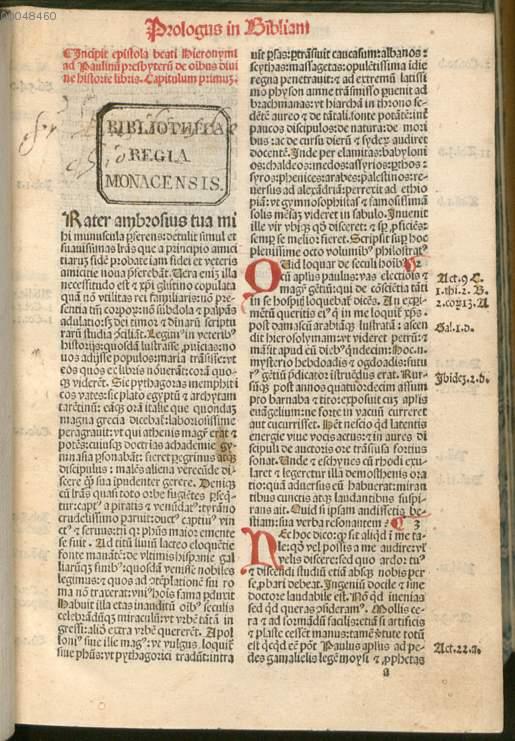 00048460
Prologus in Bibliam
Incipit epistola beati Hieronymi
ad Paulinū presbyterū de oībus diui
ne historie libris. Capitulum primuȝ.
BIBLIOTHECA
REGIA
MONACENSIS.
Rater ambrosius tua mi
hi munuscula ꝑferens: detulit simul et
suauissimas lr̄as que a principio amici
tiaruȝ fidē probate iam fidei et veteris
amicitie noua ꝓferebāt. Uera eniȝ illa
necessitudo est ⁊ xp̄i glutino copulata
quā nō vtilitas rei familiaris: nō pre-
sentia tm̄ corpoꝝ: nō subdola ⁊ palpās
adulatio: sȝ dei timor ⁊ diuinaꝝ scriptu
rarū studia ↄciliāt. Legim⁹ in veterib⁹
historijs: quosdā lustrasse ꝓuincias: no
uos adijsse populos: maria trāsisse: vt
eos quos ex libris nouerāt: corā quo-
qȝ viderēt. Sic pythagoras memphiti
cos vates: sic plato egyptū ⁊ archytam
tarētinū: eāqȝ orā italie que quondaȝ
magna grecia dicebat̄: laboriosissime
peragrauit: vt qui athenis maḡr erat ⁊
potēs: cuiusqȝ doctrīas achademie gy-
mnasia ꝑsonabāt: fieret peregrinus atqȝ
discipulus: malēs aliena verecūde di-
scere qȝ sua īpudenter gerere. Deniqȝ
cū lr̄as quasi toto orbe fugiētes ꝑseq̄-
tur: capt⁹ a piratis ⁊ venūdat⁹: tyrāno
crudelissimo paruit: duct⁹ captiu⁹ vin
ct⁹ ⁊ seruus: tn̄ qȝ ph̄us maior emente
se fuit. Ad titū liuiū lacteo eloquētie
fonte manātē: de vltimis hispanie gal
liarūqȝ finib⁹: quosdā venisse nobiles
legimus: ⁊ quos ad ↄtēplationē sui ro
ma nō traxerat: vni⁹ hoīs fama ꝑduxit
Habuit illa etas inauditū oīb⁹ seculis
celebrādūqȝ miraculū: vt vrbē tātā in
gressi: aliō extra vrbē quererēt. Apol
loni⁹ siue ille mag⁹: vt vulgus loquit̄
siue ph̄us: vt pythagorici tradūt: intra
uit ꝑsas: ꝑtrāsiuit caucasum: albanos:
scythas: massagetas: opulētissima īdie
regna penetrauit: ⁊ ad extremū latissi
mo physon amne trāsmisso ꝑuenit ad
brachmanas: vt hiarchā in throno se-
dētē aureo ⁊ de tātali fonte potātē: int̄
paucos discipulos: de natura: de mori
bus: ac de cursu dierū ⁊ syderꝝ audiret
docentē. Inde per elamitas: babyloni
os: chaldeos: medos: assyrios: ꝑthos:
syros: phenices: arabes: palestinos: re-
uersus ad alexādriā: perrexit ad ethio
piā: vt gymnosophistas ⁊ famosissimā
solis mēsaȝ videret in sabulo. Inuenit
ille vir vbiqȝ qd̄ disceret: ⁊ sꝑ ꝓficiēs:
semꝑ se melior fieret. Scripsit suꝑ hoc
plenissime octo volumīb⁹ philostrat⁹
Quid loquar de seculi hoībȝ?
cū apl̄us Paulus: vas electiōis ⁊
maḡr gētiū: qui de cōsciētia tāti
in se hospitȝ loquebat̄ dicēs. An expi-
mētū queritis ei⁹ q̄ in me loquit̄ xp̄s.
post damascū arabiāqȝ lustratā: ascen
dit hierosolymam: vt videret petrū: ⁊
māsit apud eū dieb⁹ q̄ndecim: Hoc. n.
mysterio hebdoadis ⁊ ogdoadis: futu
r⁹ gētiū p̄dicator īstruēdus erat. Rur-
sūqȝ post annos quatuordecim assum
pto barnaba ⁊ tito: exposuit cuȝ aplis
euāgelium: ne forte in vacuū curreret
aut cucurrisset. Hēt nescio qd̄ latentis
energie viue vocis actus: ⁊ in aures di
scipuli de auctoris ore trāsfusa fortius
sonat. Unde ⁊ eschynes cū rhodi exu-
laret ⁊ legeretur illa demosthenis ora
tio: quā aduersus eū habuerat: miran
tibus cunctis atqȝ laudantibus suspi-
rans ait. Quid si ipsam audissetis be-
stiam: sua verba resonantem? C 3
Nec hoc dico: ꝙ sit aliqd̄ ī me ta-
le: qd̄ vel possis a me audire: vl̄
velis discere: sed quo ardor tu⁹
⁊ discendi studiū etiā absqȝ nobis per
se ꝓbari debeat. Ingeniū docile ⁊ sine
doctore laudabile est. Nō qd̄ inuenias
sed qd̄ queras ↄsideram⁹. Mollis ce-
ra ⁊ ad formādū facilis: etiā si artificis
⁊ plaste cesset manus: tamē v̄tute totū
est qc̄qd̄ eē pōt Paulus apl̄us ad pe-
des gamalielis legē moysi ⁊ ꝓphetas
a
Act. 9 C.
1. thi. 2. B.
2. coꝝ 13. A
Gal. 1. d.
Ibidē. 2. b.
Act. 22. a.